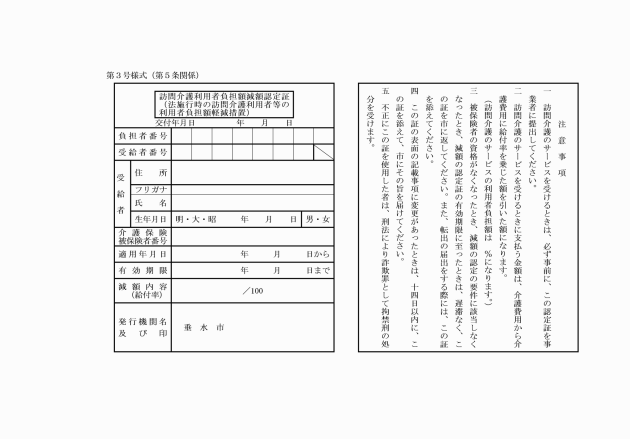 第３号様式（第５条関係）
訪問介護利用者負担額減額認定証
（法施行時の訪問介護利用者等の
利用者負担額軽減措置）
交付年月日　　年　　月　　日
負担者番号
受給者番号
受給者
住　所
フリガナ
氏　名
生年月日　明・大・昭　　年　　月　　日　男・女
介護保険
被保険者番号
適用年月日　　年　　月　　日から
有効期限　　年　　月　　日まで
減額内容
（給付率）
／100
発行機関名
及び印
垂水市
注意事項
一　訪問介護のサービスを受けるときは、必ず事前に、この認定証を事
業者に提出してください。
二　訪問介護のサービスを受けるときに支払う金額は、介護費用から介
護費用に給付率を乗じた額を引いた額になります。
（訪問介護のサービスの利用者負担額は　％になります。）
三　被保険者の資格がなくなったとき、減額の認定の要件に該当しなく
なったとき、減額の認定証の有効期限に至ったときは、遅滞なく、こ
の証を市に返してください。また、転出の届出をする際には、この証
を添えてください。
四　この証の表面の記載事項に変更があったときは、十四日以内に、こ
の証を添えて、市にその旨を届けてください。
五　不正にこの証を使用した者は、刑法により詐欺罪として拘禁刑の処
分を受けます。